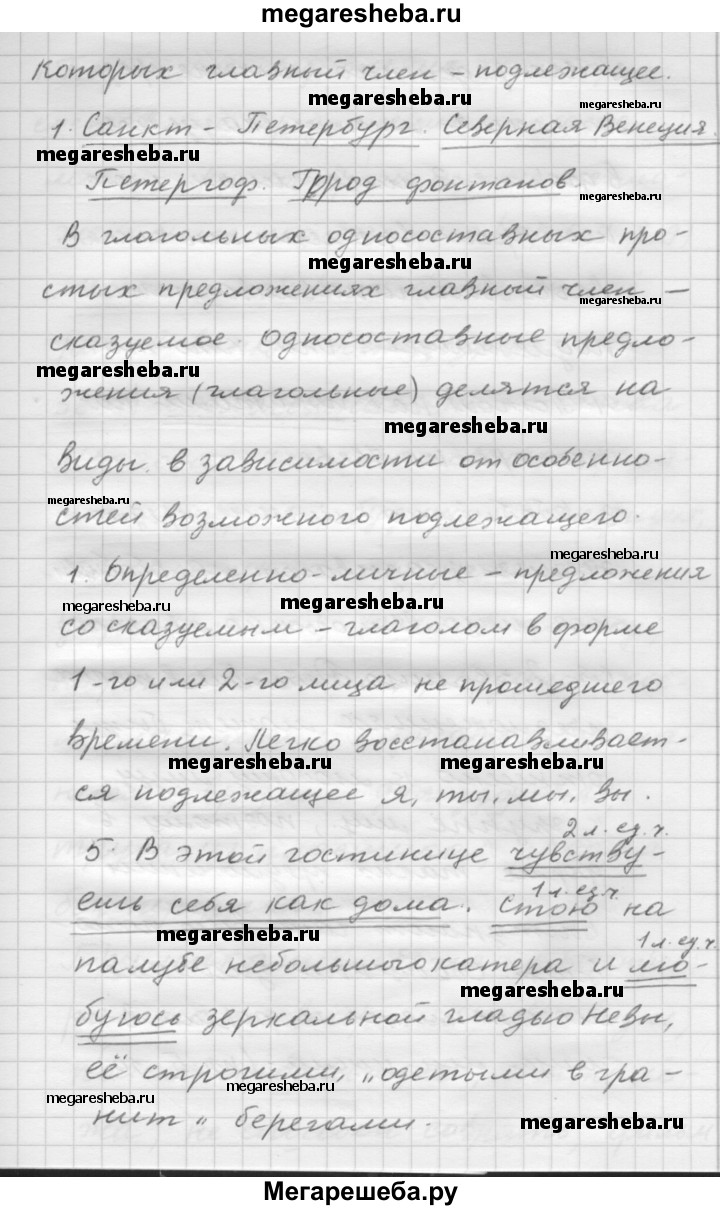 megaresheba.ru
которых главный член - подлежащее.
megaresheba.ru
megaresheba.ru
1. Санкт - Петербург. Северная Венеция
megaresheba.ru
Петергоф. Город фонтанов.
megaresheba.ru
В глагольных односоставных про-
megaresheba.ru
стых предложениях главный член -
megaresheba.ru
сказуемое. Односоставные предло-
megaresheba.ru
жения (глагольные) делятся на
megaresheba.ru
виды в зависимости от особенно-
megaresheba.ru
стей возможного подлежащего.
megaresheba.ru
1. Определенно-личные - предложения
megaresheba.ru
megaresheba.ru
со сказуемым - глаголом в форме
1-го или 2-го лица не прошедшего
времени. Легко восстанавливает-
megaresheba.ru
megaresheba.ru
ся подлежащее я, ты, мы, вы.
2 л. ед. ч.
5. В этой гостинице чувству-
1 л. ед. ч.
ешь себя как дома. Стою на
megaresheba.ru
1 л. ед. ч.
палубе небольшого катера и лю-
megaresheba.ru
буюсь зеркальной гладью Невы,
её строгими, „одетыми в гра-
megaresheba.ru
megaresheba.ru
нит„ берегами.
Мегарешеба.ру